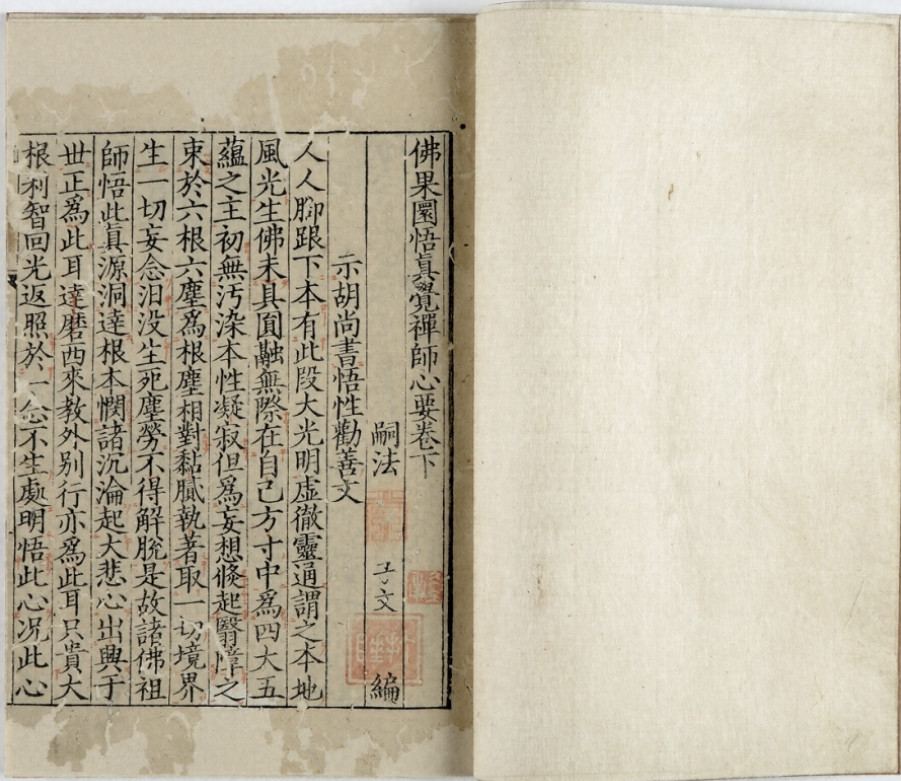 佛果圜悟真覺禪師心要卷下
嗣法 子文 編
示胡尚書悟性勸善文
人人脚跟下本有此段大光明虛徹靈通謂之本地
風光生佛未具圓融無際在自己方寸中爲四大五
蘊之主初無汚染本性凝寂但爲妄想倐起翳障之
束於六根六塵爲根塵相對黏膩執著取一切境界
生一切妄念汩没生死塵勞不得解脫是故諸佛祖
師悟此眞源洞達根本憫諸沉淪起大悲心出興于
世正爲此耳達磨西來教外别行亦爲此耳只貴大
根利智回光返照於一念不生處明悟此心况此心